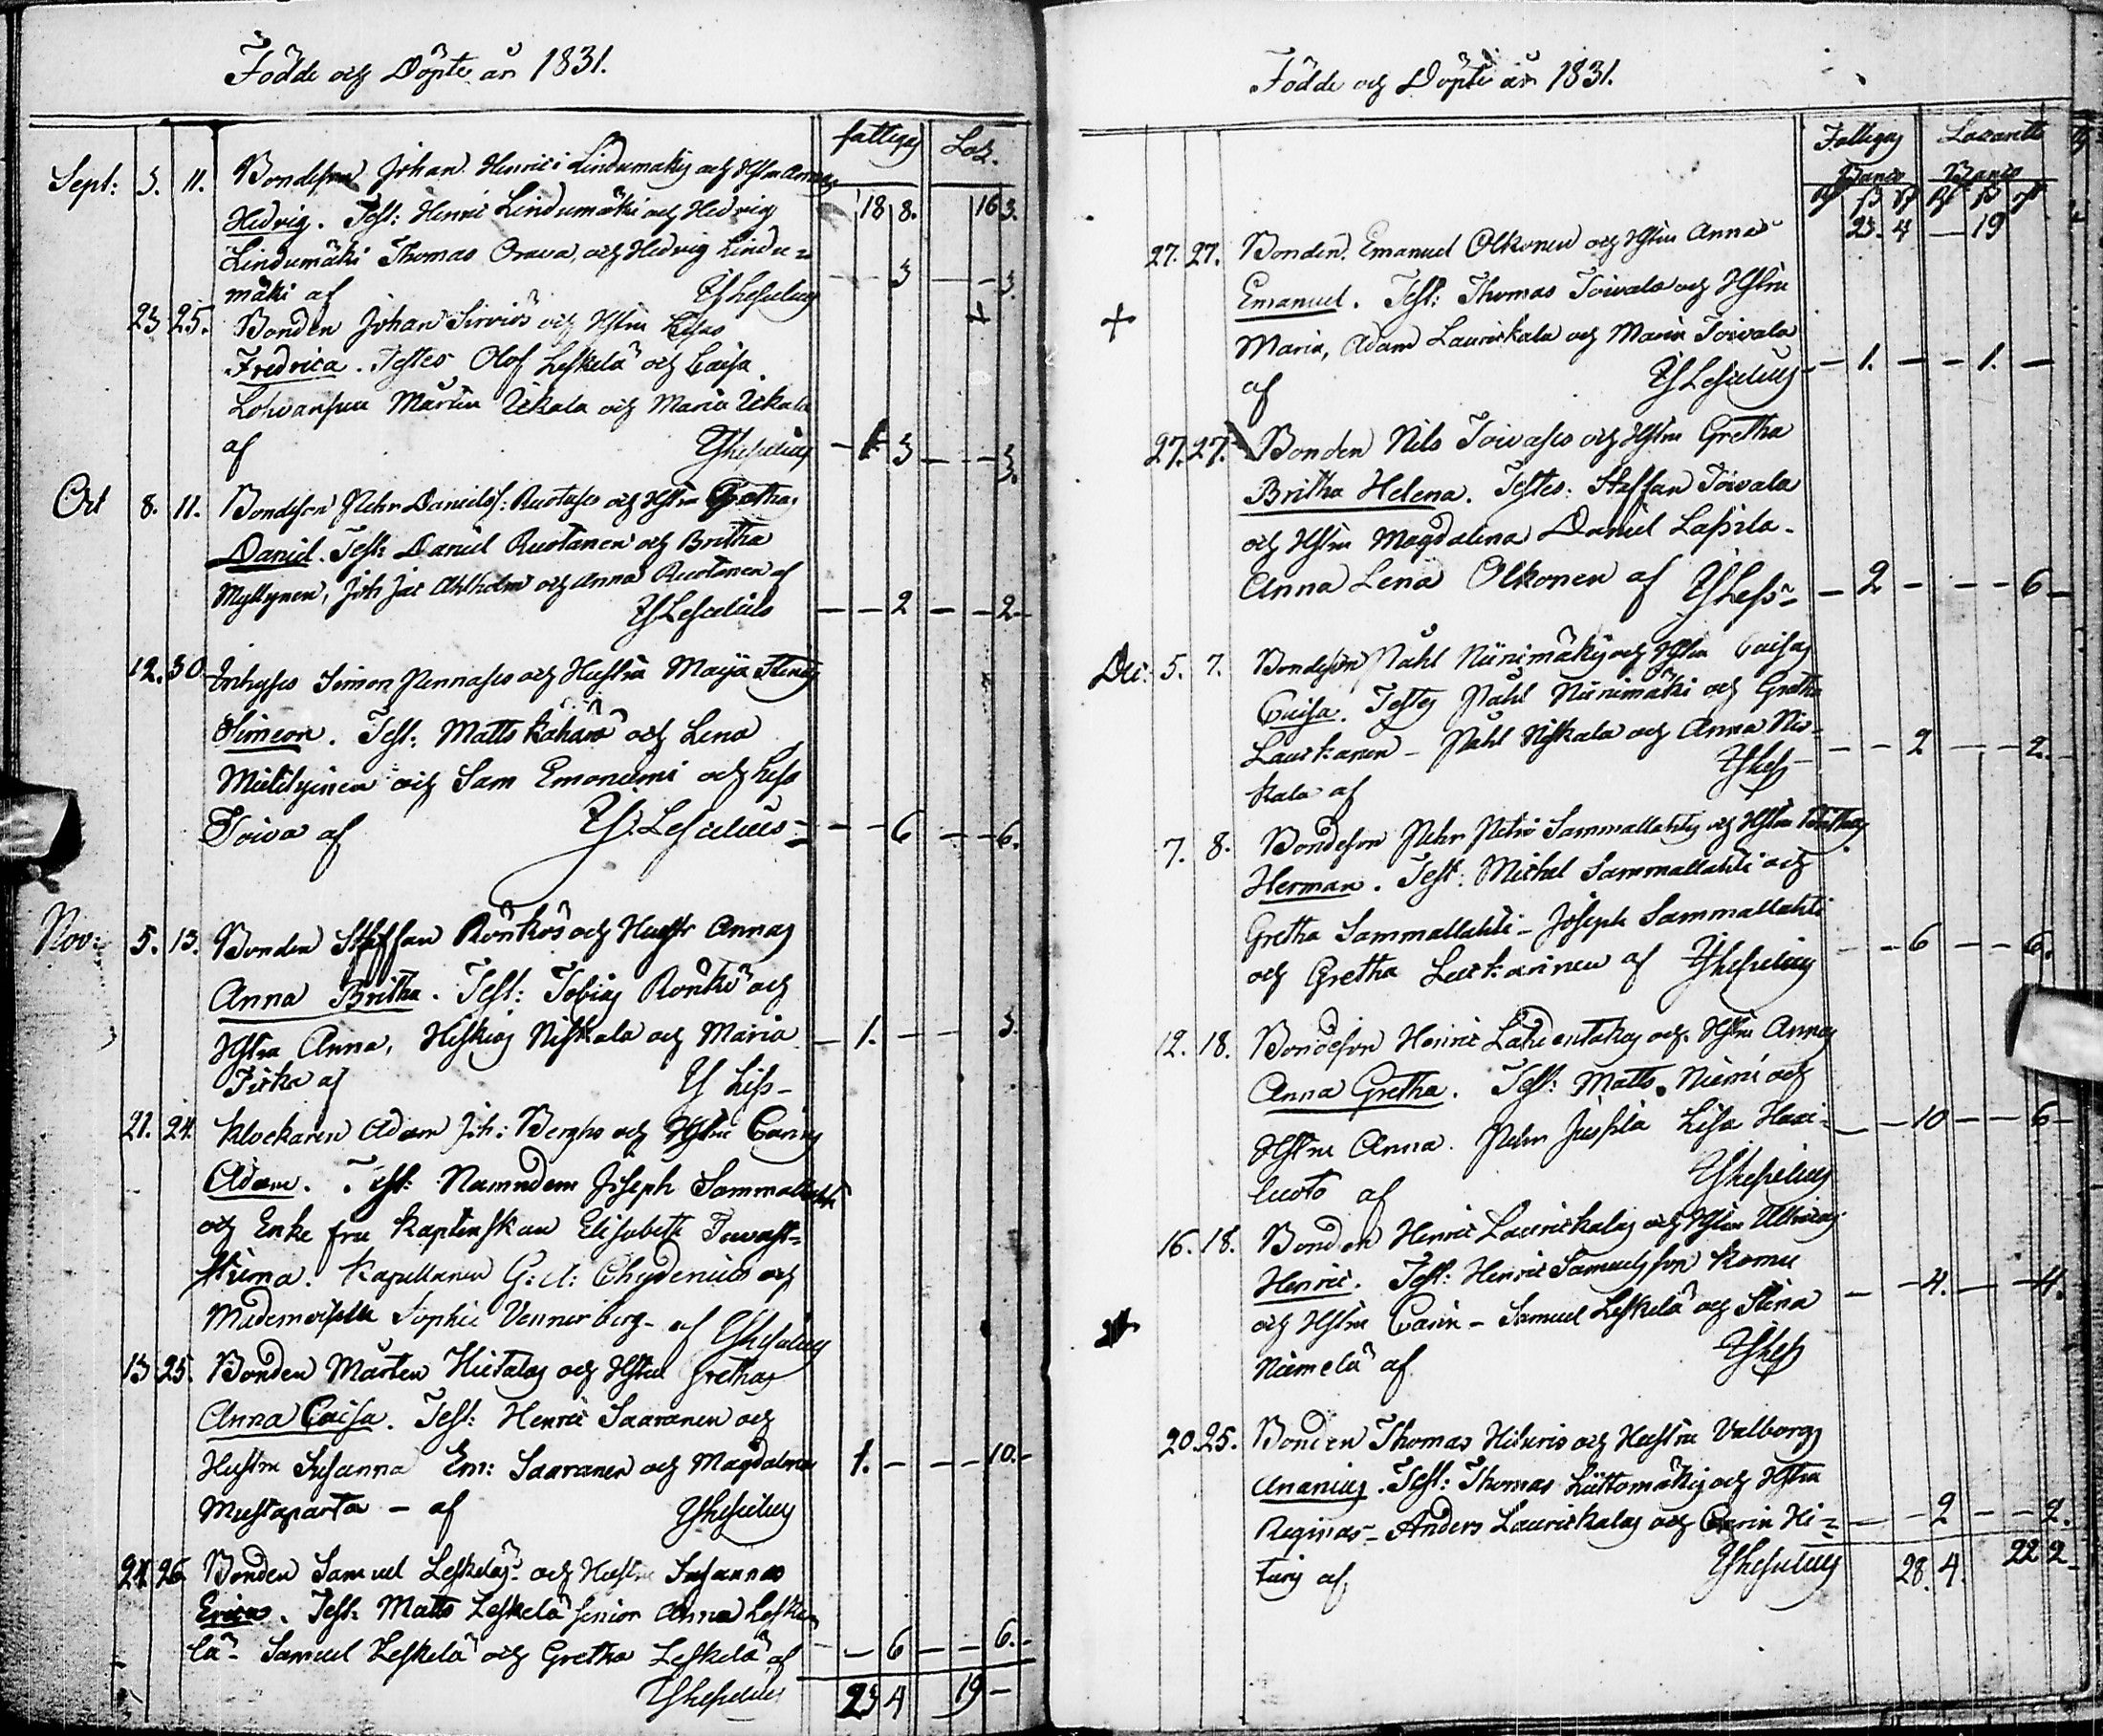 Födde och Döpte år 1831.
fattigs Laz.
Sept: 3. 11. Bondeson Johan Henrici Lindumäkis och Hstru Annas
18 8. 16 3.
Hedvig. Test: Henric Lindumäki och Hedvig
Lindumäki Thomas Orava, och Hedvig Lindu=
mäki af YLesselius — — 3 — — 3.
23 25. Bonden Johan Sirviös och Hstru Lisas
Fredrica. Testes Olof Leskelä och Caisa
Mårten Ukala och Maria Ukala
af YLesselius — 3 — — 3.
Oct 8. 11. Bondeson Pehr Danielss: Ruotases och Hstru Grethas
Daniel. Test: Daniel Ruotanen och Britha
Myllynen, Joh Jac Ahlholm och Anna Ruotanen af
YLesselius — — 2 — — 2 —
12. 30 Inhyses Simon Pennases och Hustru Maija Stinas
Simeon. Test: Matts Kahara och Lena
och Sam Emoniemi och Lisa
Toiva af Y. Lesselius — — 6 — — 6.
Nov: 5. 13. Bonden Steffan Rönkös och Hustr Annas
Anna Britha. Test: Tobias Rönkö och
Hstru Anna, Hiskias Niskala och Maria — 1. — — 3.
Jirka af Y Less—
21. 24. Klockaren Adam Joh: Berghs och Hstru Carins
Adam. Test: Namndem Joseph Sammallahti
och Enke fru Kaptenskan Elisabeth Tawast=
stjerna. Kapellanen G: A: Chydenius och
Mademoiselle Sophie Vennerberg — af YLesselius
13 25. Bonden Mårten Hietalas och Hstru Grethas
Anna Caisa. Test: Henric Saaranen och
Hustru Susanna Em: Saaranen och Magdalena 1. — — — 10. —
Mustaparta — af YLesselius
24 26 Bonden Samuel Leskeläs och Hustru Susannas
Ericas. Test: Matts Leskelä senior Anna Leske
lä — Samuel Leskelä och Gretha Leskelä af — 6 — — 6. —
YLesselius 23 4 19 —
Födde och Döpte år 1831.
Fattigas Lazarett
Banco Banco
23. 4 — 19
27. 27. Bonden Emanuel Olkonen och Hstru Annas
Emanuel. Test: Thomas Toivala och Hstru
Maria, Adam Lauriikala och Maria Toivala
af YLesselius — 1. — — 1. —
27. 27. Bonden Nils Toivases och Hstru Gretha
Britha Helena. Testes: Staffan Toivala
och Hstru Magdalena Daniel Lassila —
Anna Lena Olkonen af YLess — — 2 — — — 6 —
Dec: 5. 7. Bondeson Påhl Niinimäkis och Hstru Caisas
Caisa. Testes Påhl Niinimäki och Gretha
Laurkanen — Påhl Niskala och Anna Nis— — — 2 — — 2.
kala af YLess
7. 8. Bondeson Pehr Pehrs Sammallahtis och Hstru Brithas
Herman. Test: Michel Sammallahti och
Gretha Sammallahti — Joseph Sammallahti
och Gretha Luukarinen af YLesselius — — 6 — — 6.
12. 18. Bondeson Henric Lahdentakas och Hstru Annas
Anna Gretha. Test: Matts Niemi och
Hstru Anna. Pehr Jussila Lisa Havi= — — 10 — — 6 —
luoto af YLesselius
16. 18. Bonden Henric Lauriikalas och Hstru Ulricas
Henric. Test: Henric Samuelsson Komu — — 4. — — 4.
och Hstru Carin — Samuel Leskelä och Stina
Niemelä af YLess
20. 25. Bonden Thomas Hituris och Hustru Valborgs
Ananias. Test: Thomas Luttomäkis och Hstru
Reginas — Anders Lauriikalas och Carin Hi= — — 2 — — 2.
turis af YLesselius 28. 4. 22 2